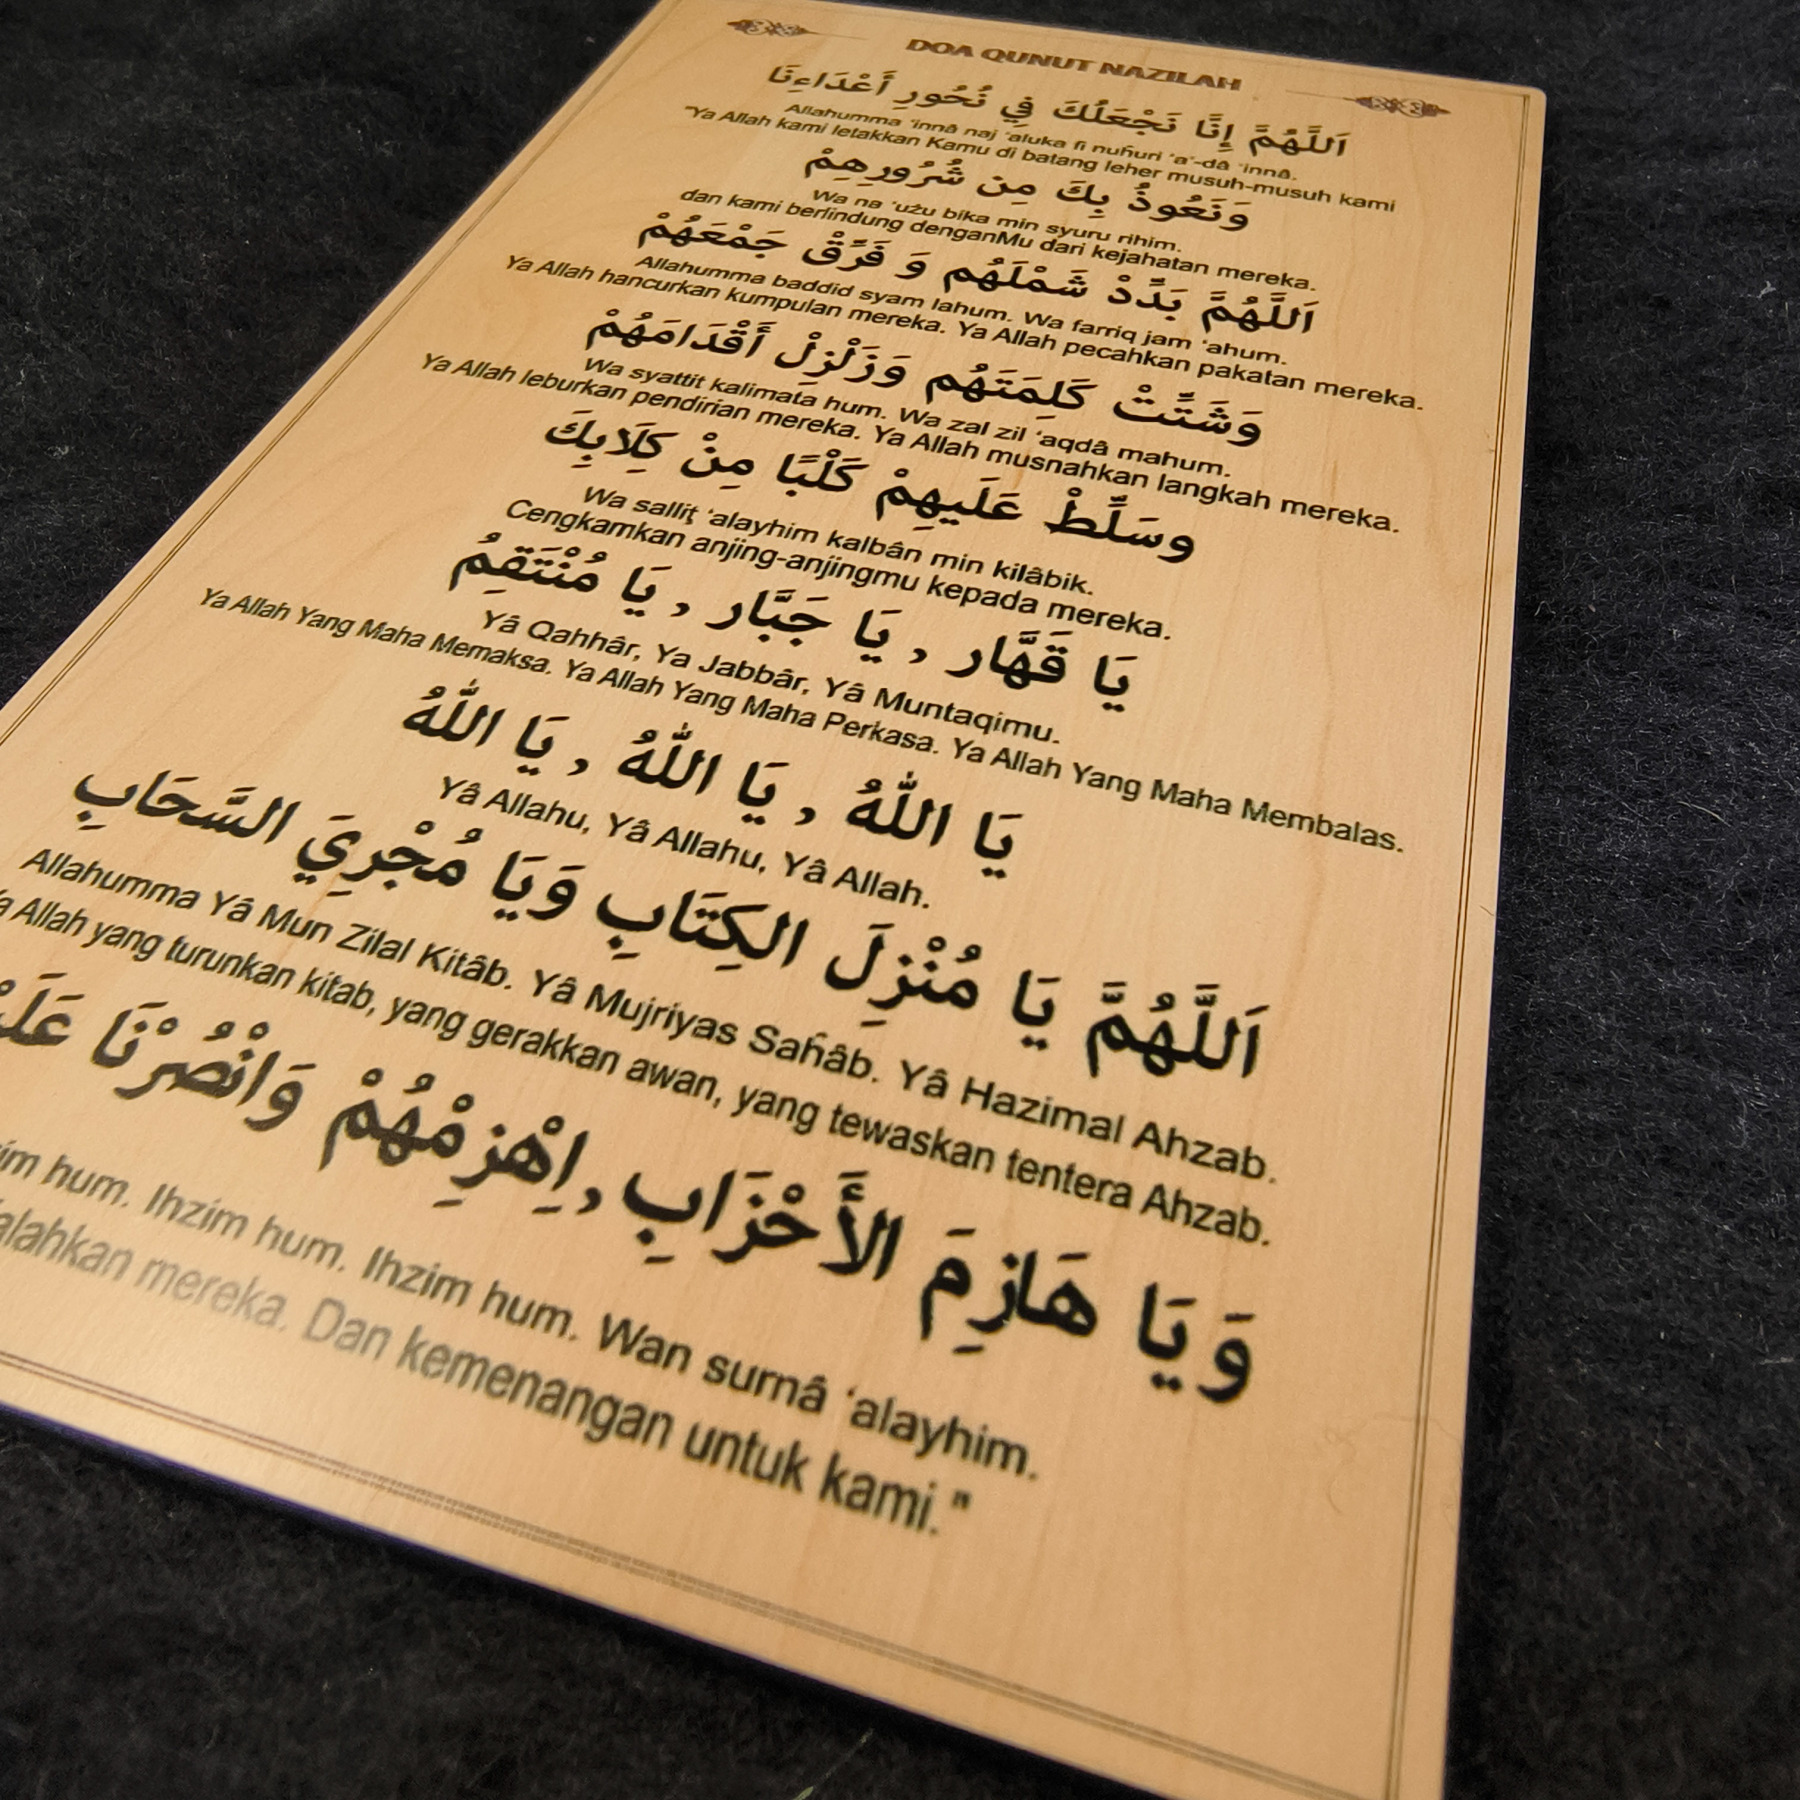 DOA QUNUT NAZILAH
اَللَّهُمَّ إِنَّا نَجْعَلُكَ فِي نُحُورِ أَعْدَاءِنَا
Allahumma 'innâ naj 'aluka fi nuĥuri 'a'-dâ 'innâ.
"Ya Allah kami letakkan Kamu di batang leher musuh-musuh kami
وَنَعُوذُ بِكَ مِن شُرُورِهِمْ
Wa na 'użu bika min syuru rihim.
dan kami berlindung denganMu dari kejahatan mereka.
اَللَّهُمَّ بَدِّدْ شَمْلَهُم وَ فَرِّقْ جَمْعَهُمْ
Allahumma baddid syam lahum. Wa farriq jam 'ahum.
Ya Allah hancurkan kumpulan mereka. Ya Allah pecahkan pakatan mereka.
وَشَتِّتْ كَلِمَتَهُم وَزَلْزِلْ أَقْدَامَهُمْ
Wa syattit kalimata hum. Wa zal zil 'aqdâ mahum.
Ya Allah leburkan pendirian mereka. Ya Allah musnahkan langkah mereka.
وسَلِّطْ عَلَيهِمْ كَلْبًا مِنْ كِلَابِكَ
Wa salliţ 'alayhim kalbân min kilâbik.
Cengkamkan anjing-anjingmu kepada mereka.
يَا قَهَّار , يَا جَبَّار , يَا مُنْتَقِمُ
Yâ Qahhâr, Ya Jabbâr, Yâ Muntaqimu.
Ya Allah Yang Maha Memaksa. Ya Allah Yang Maha Perkasa. Ya Allah Yang Maha Membalas.
يَا اللّٰهُ , يَا اللّٰهُ , يَا اللّٰهُ
Yâ Allahu, Yâ Allahu, Yâ Allah.
اَللَّهُمَّ يَا مُنْزِلَ الكِتَابِ وَيَا مُجْرِيَ السَّحَابِ
Allahumma Yâ Mun Zilal Kitâb. Yâ Mujriyas Saĥâb. Yâ Hazimal Ahzab.
Allah yang turunkan kitab, yang gerakkan awan, yang tewaskan tentera Ahzab.
وَيَا هَازِمَ الأَحْزَابِ , اِهْزِمْهُمْ وَانْصُرْنَا
hum. Ihzim hum. Ihzim hum. Wan surnâ 'alayhim.
mereka. Dan kemenangan untuk kami."